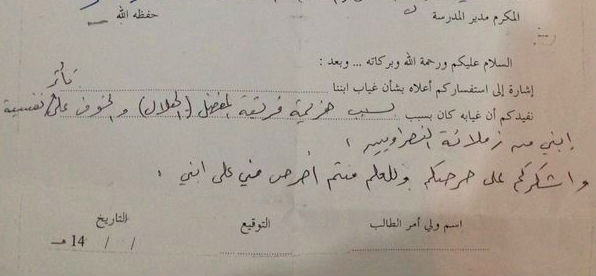 المكرم مدير المدرسة حفظه الله
السلام عليكم ورحمة الله وبركاته ... وبعد :
إشارة إلى استفساركم أعلاه بشأن غياب ابننا
نفيدكم أن غيابه كان بسبب تأثر بسبب هزيمة فريقه المفضل (الهلال) والخوف على نفسية
إبني من زملائه النصراويين ،
واشكركم على حرصكم وللعلم فنتم أحرص مني على ابني .
اسم ولي أمر الطالب التوقيع التاريخ
/ / 14 هـ